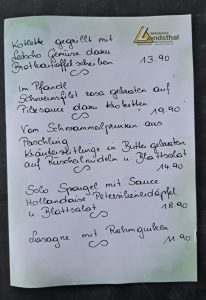 Landsthal
Kotlette gegrillt mit
Letscho Gemüse dazu
Bratkartoffelscheiben
13.90
Im Pfandl
Schweinsfilet rosa gebraten auf
Pilzsauce dazu Kroketten
19.90
Vom Schwammerlprinzen aus
Parschlug
Kräuterseitlinge in Butter gebraten
auf Bandnudeln u. Blattsalat
14.90
Solo Spargel mit Sauce
Hollandaise Petersilienerdäpfel
u. Blattsalat
18.90
Lasagne mit Rahmgurken
11.90